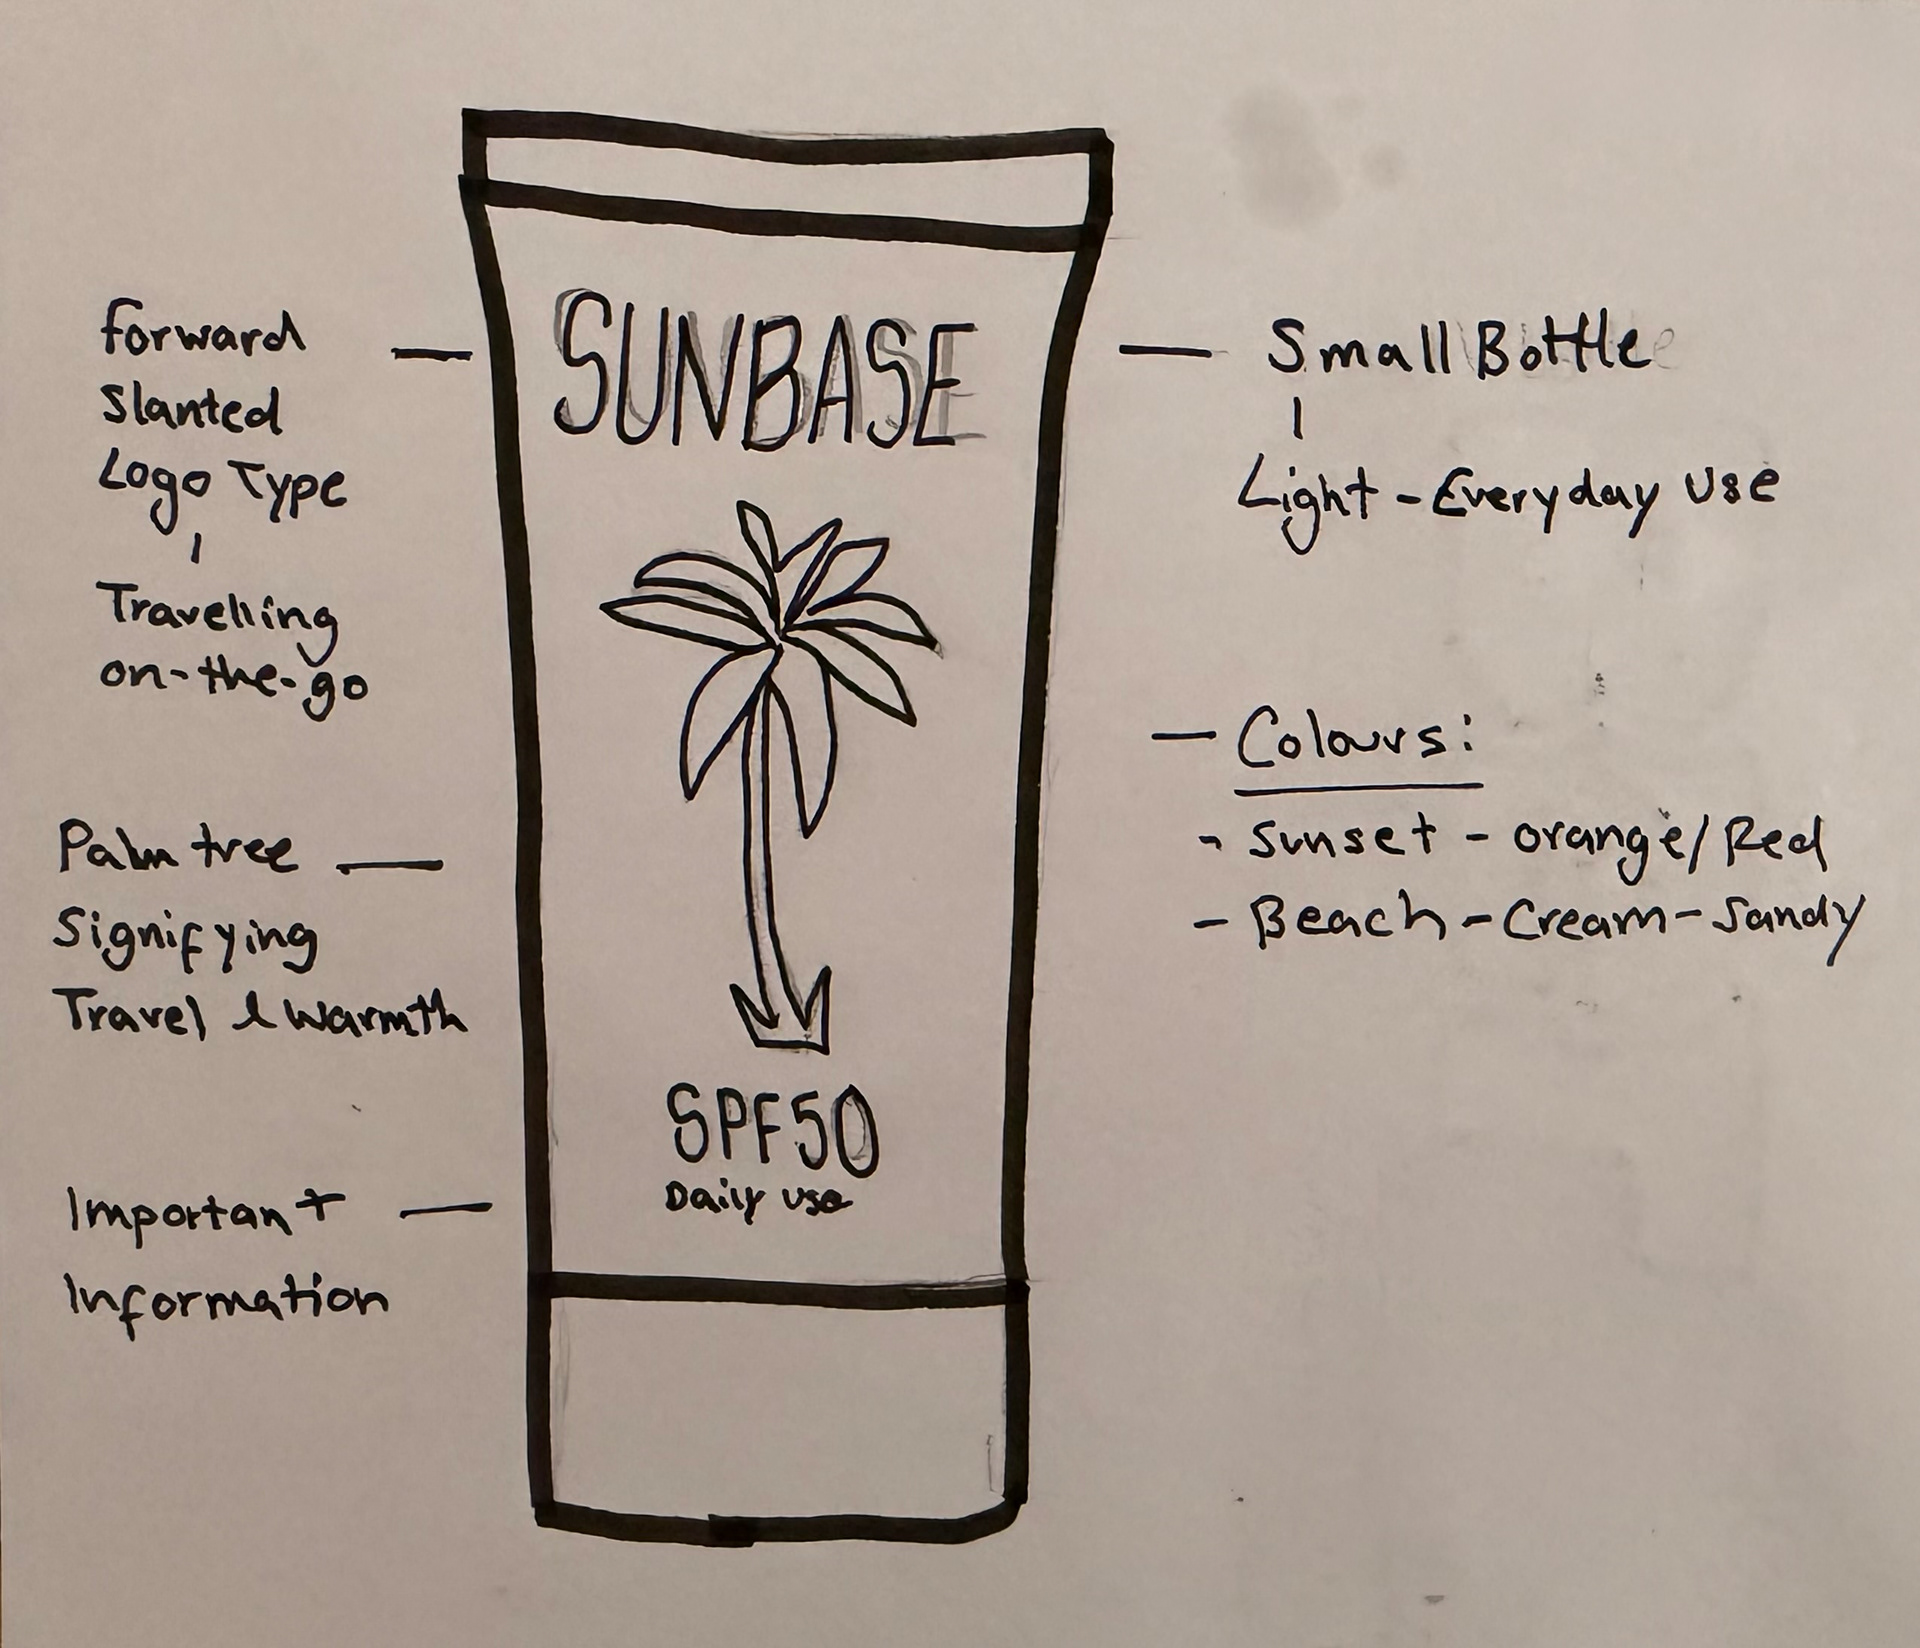 SUNBASE
SPF50
Daily use
forward
Slanted
Logo Type
Travelling
on-the-go
Palm tree
Signifying
Travel & warmth
Important
Information
Small Bottle
Light - Everyday Use
Colours:
- Sunset - orange/Red
- Beach - Cream - Sandy